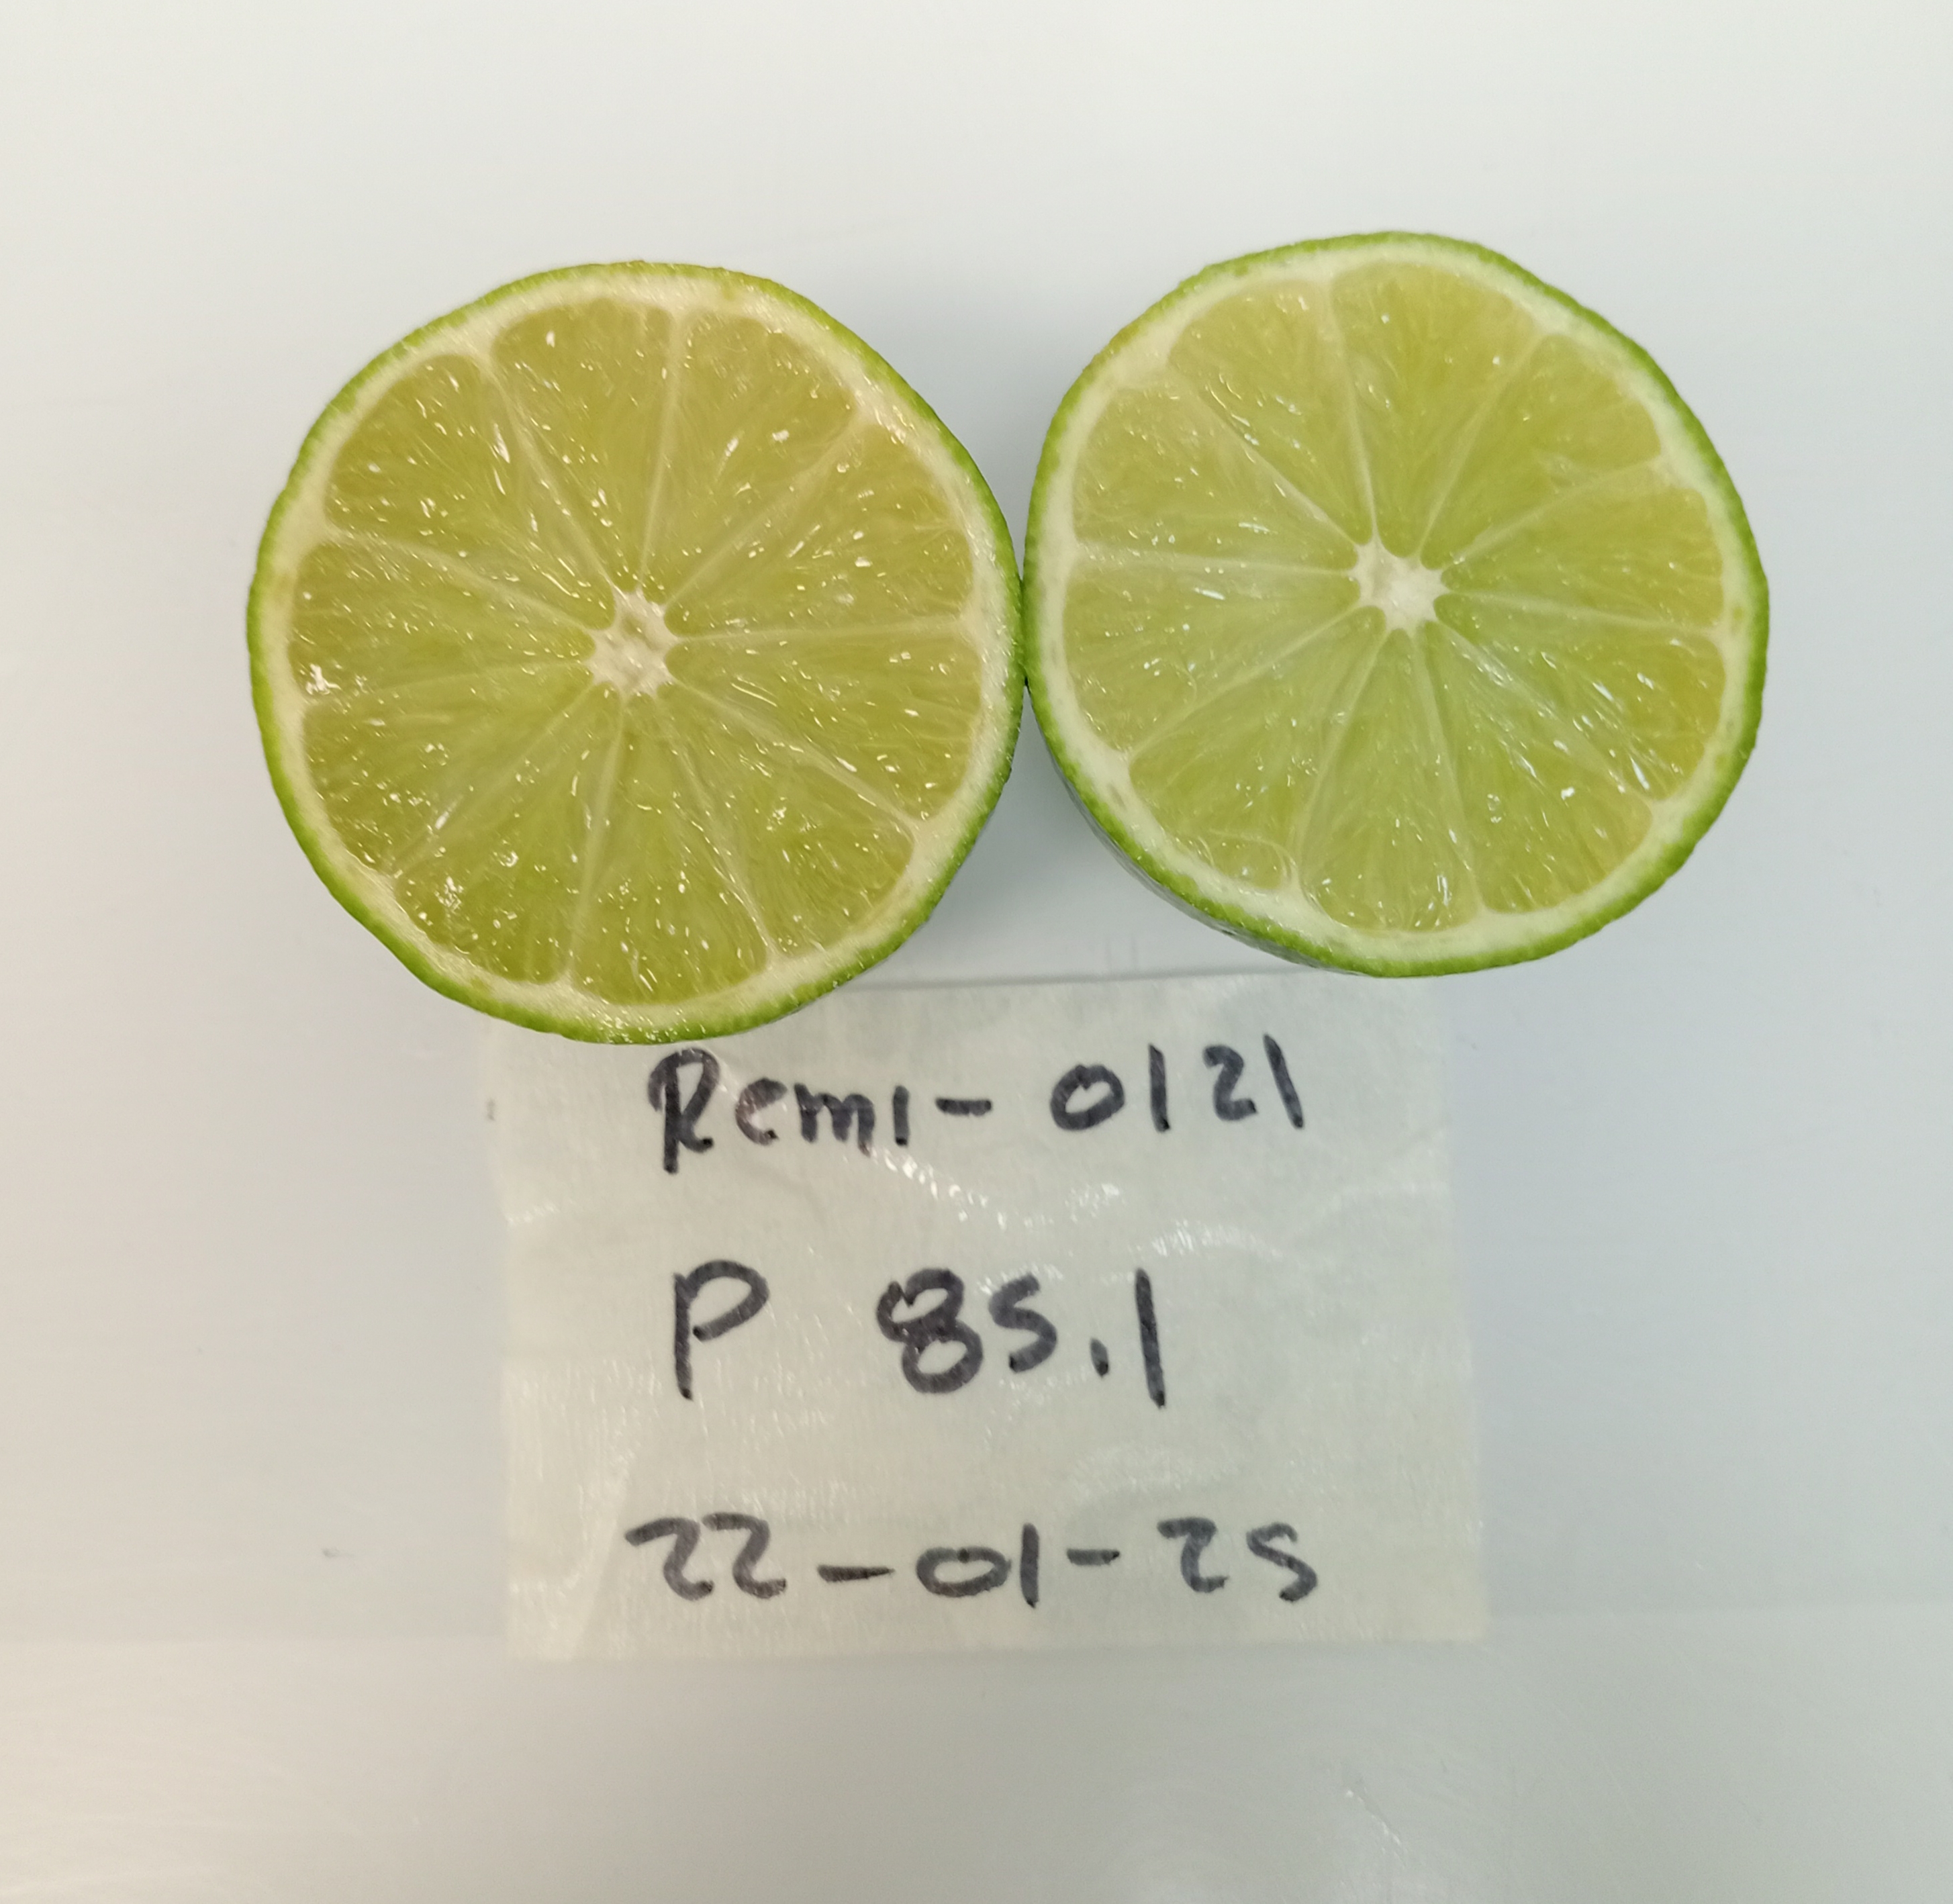 Remi-0121
P 85.1
22-01-25